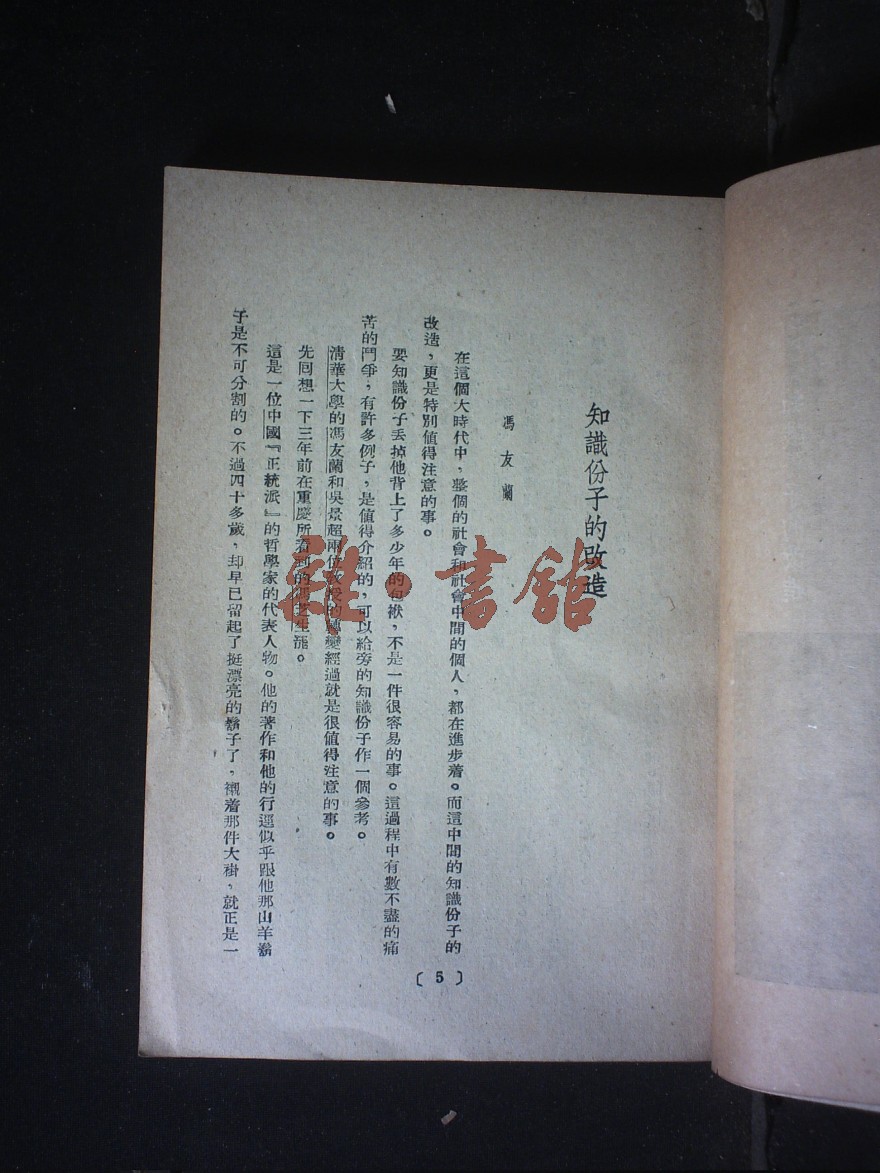 知識份子的改造
馮友蘭
在這個大時代中，整個的社會和社會中間的個人，都在進步着。而這中間的知識份子的
改造，更是特別値得注意的事。
要知識份子丢掉他背上了多少年的包袱，不是一件很容易的事。這過程中有數不盡的痛
苦的鬥爭，有許多例子，是値得介紹的，可以給旁的知識份子作一個參考。
淸華大學的馮友蘭和吳景超兩位敎授的轉變經過就是很値得注意的事。
先回想一下三年前在重慶所看到的馮芝生罷。
這是一位中國『正統派』的哲學家的代表人物。他的著作和他的行逕似乎跟他那山羊鬍
子是不可分割的。不過四十多歲，却早已留起了挺漂亮的鬍子了，襯着那件大褂，就正是一
〔5〕
雜·書舘